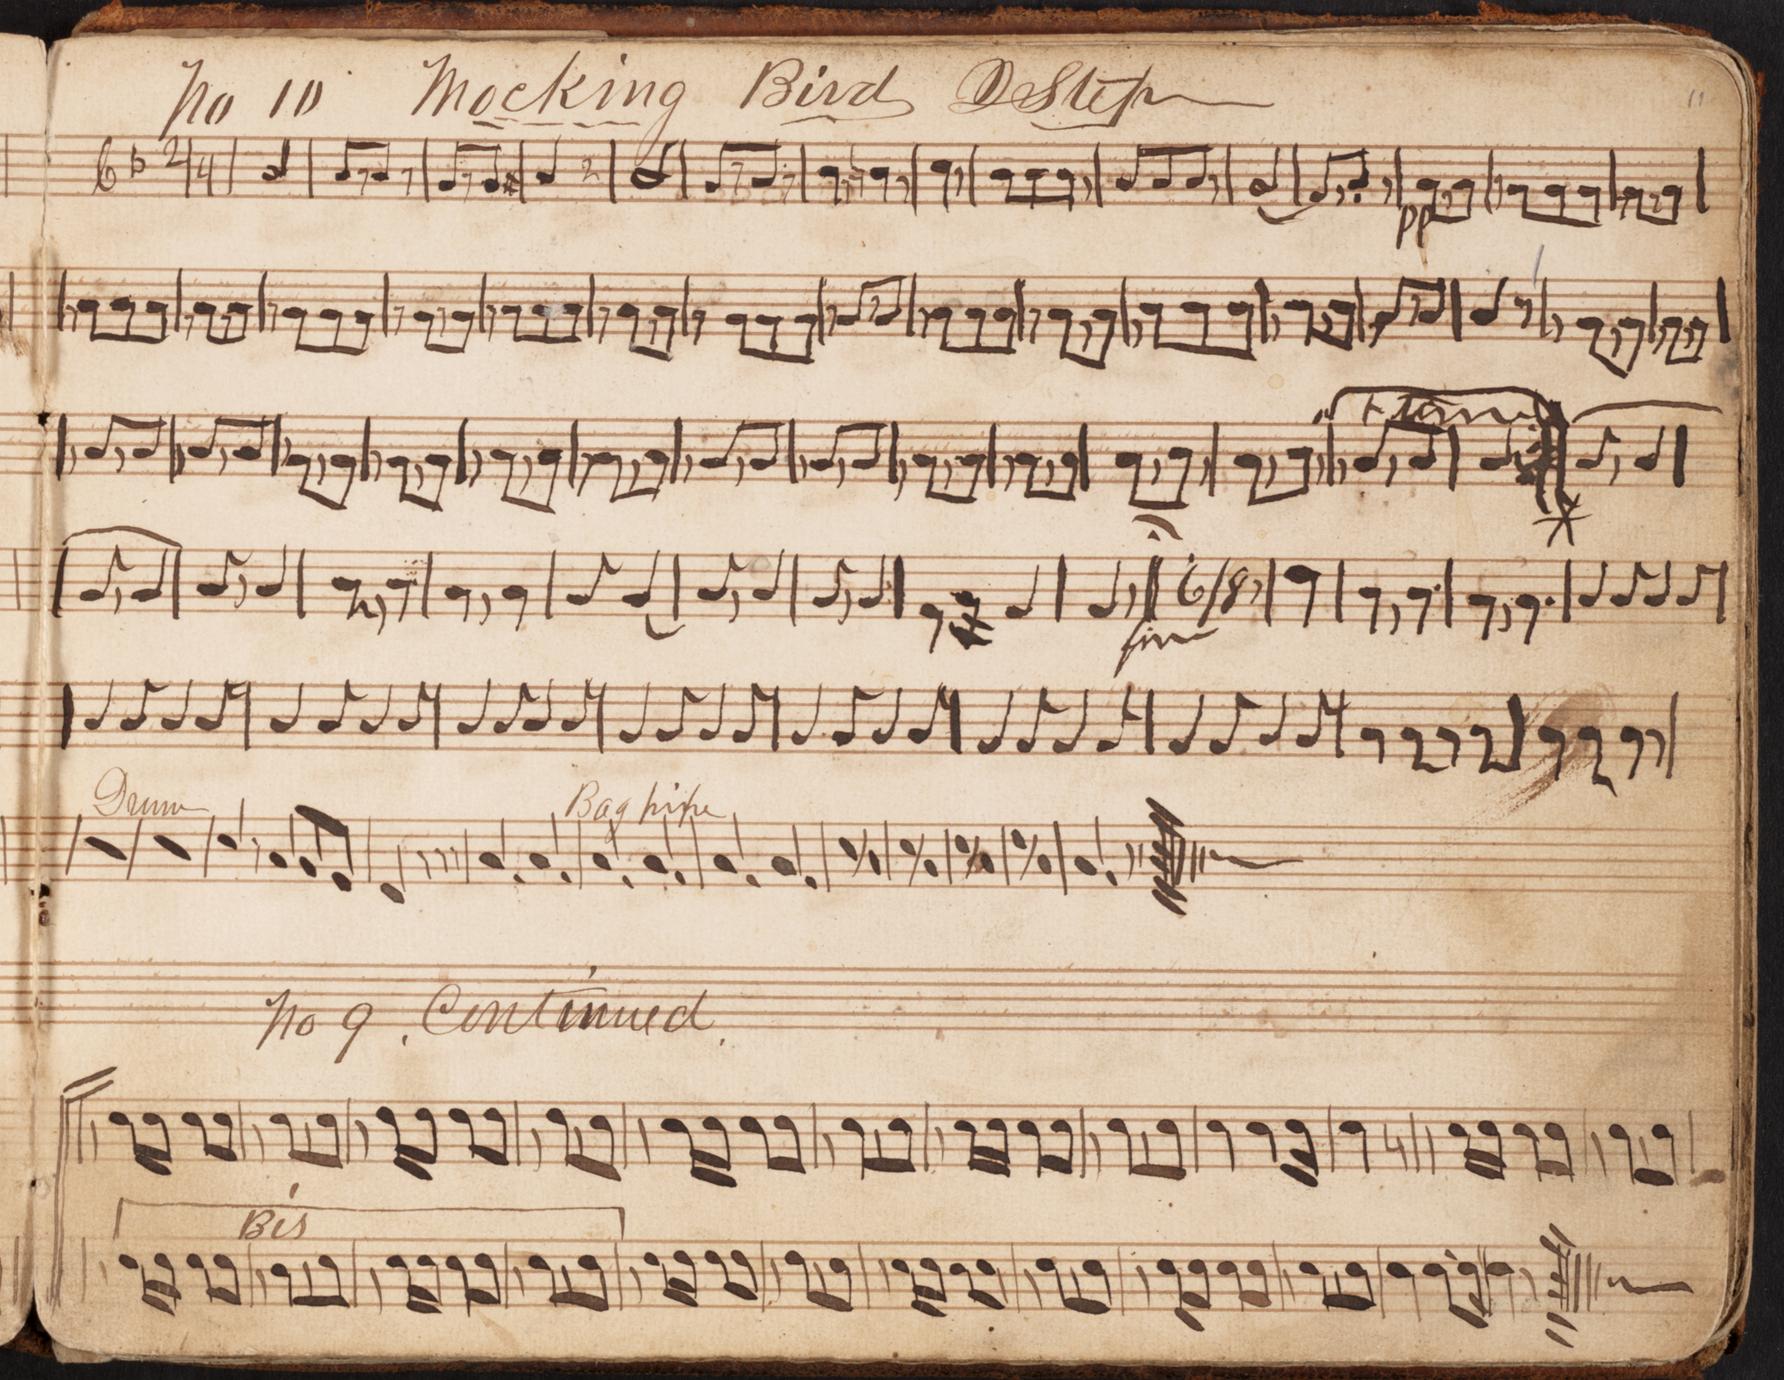 No 10 Mocking Bird QuStep
11
2/4
pp
fine
6/8
Drum Bag pipe
No 9. Continued.
Bis